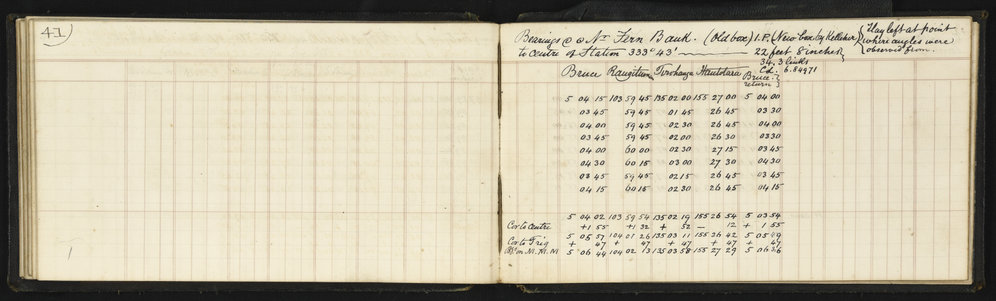 41
Bearings @ Nr Fern Bank. (Old box) I.P. (New box by Kelleher) { Flag left at point
to centre of Station 333° 43' 22 feet 8 inches } where angles were
34.3 links observed from.
Bruce Rangitumau Tirohanga Hautotara Bruce return Cd. 6.84971
5 04 15 103 59 45 135 02 00 155 27 00 5 04 00
03 45 59 45 01 45 26 45 03 30
04 00 59 45 02 30 26 45 04 00
03 45 59 45 02 00 26 30 03 30
04 00 60 00 02 30 27 15 03 45
04 30 60 15 03 00 27 30 04 30
03 45 59 45 02 15 26 45 03 45
04 15 60 15 02 30 26 45 04 15
5 04 02 103 59 54 135 02 19 155 26 54 5 03 54
Cor to Centre +1 55 +1 32 + 52 — 12 + 1 55
5 05 57 104 01 26 135 03 11 155 26 42 5 05 49
Cor to Trig + 47 + 47 + 47 + 47 + 47
Bs on M. M. M 5 06 44 104 02 13 135 03 58 155 27 29 5 06 36